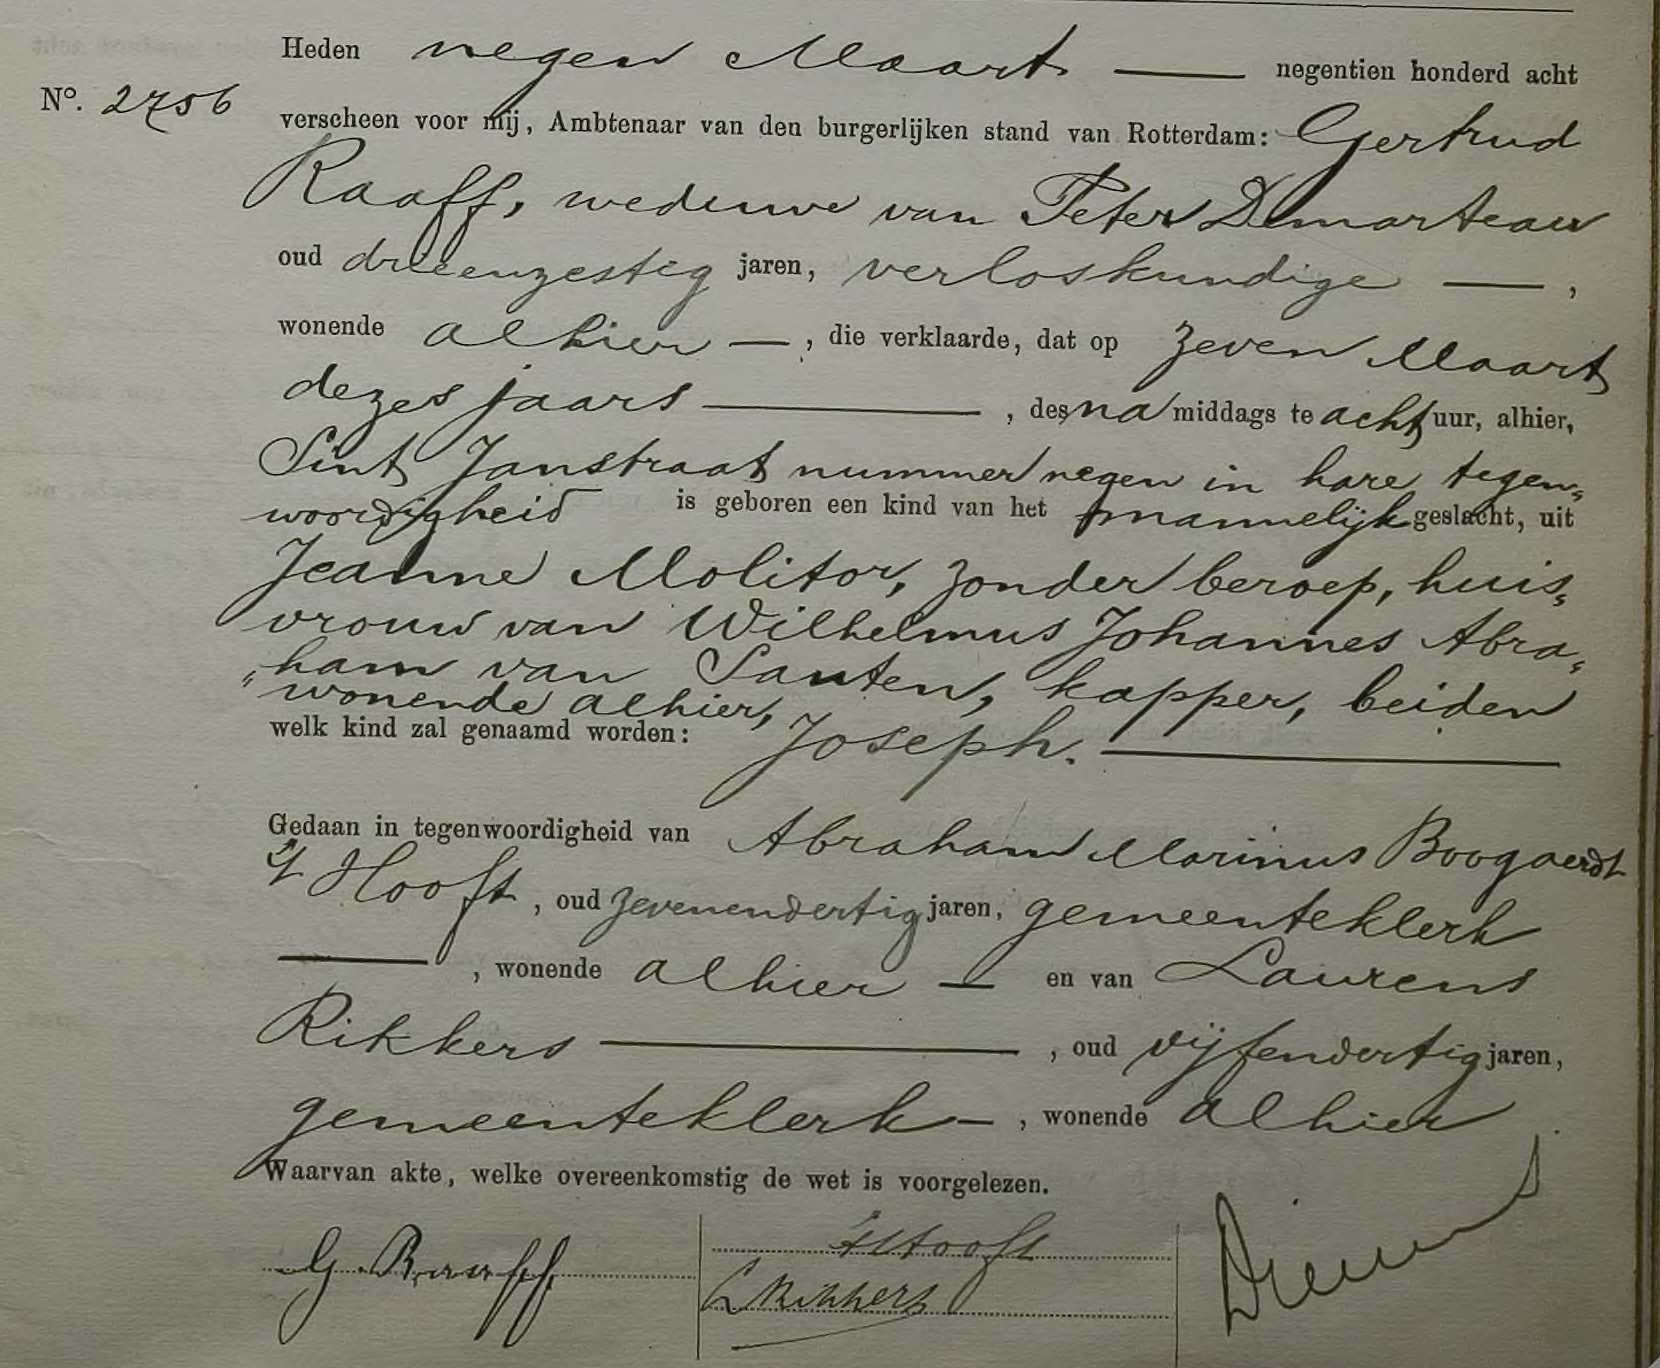 Heden negen Maart — negentien honderd acht
Nº. 2756
verscheen voor mij, Ambtenaar van den burgerlijken stand van Rotterdam: Gertrud
Raaff, weduwe van Peter Demarteau
oud drieenzestig jaren, verloskundige —,
wonende alhier —, die verklaarde, dat op zeven Maart
dezes jaars —, des namiddags te acht uur, alhier,
Sint Janstraat nummer negen in hare tegen„
woordigheid is geboren een kind van het mannelijk geslacht, uit
Jeanne Molitor, zonder beroep, huis„
vrouw van Wilhelmus Johannes Abra„
„ham van Santen, kapper, beiden
wonende alhier,
welk kind zal genaamd worden: Joseph. —
Gedaan in tegenwoordigheid van Abraham Marinus Boogaerdt
't Hooft, oud zevenendertig jaren, gemeenteklerk
—, wonende alhier — en van Laurens
Rikkers —, oud vijfendertig jaren,
gemeenteklerk —, wonende alhier
Waarvan akte, welke overeenkomstig de wet is voorgelezen.
G. Raaff
't Hooft
L Rikkers